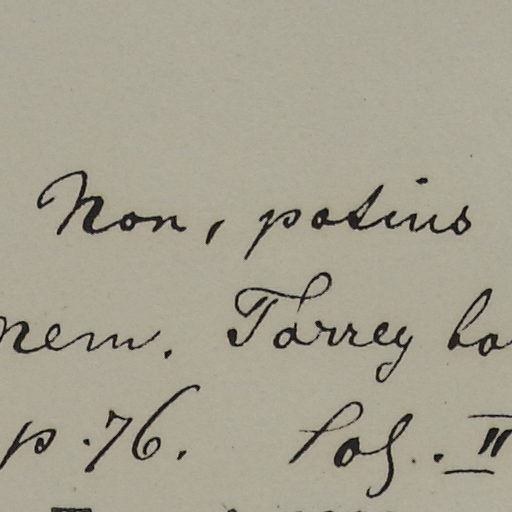 Non, potius
mem. Torrey bo
p. 76. Pag. II